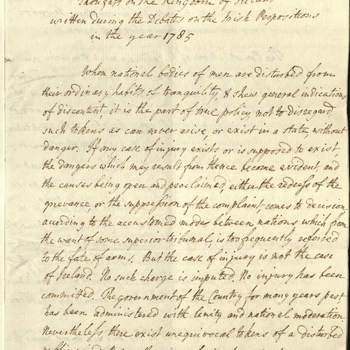 Thoughts on the Kingdom of Ireland
written during the Debates on the Irish Propositions
in the year 1785
When national bodies of men are disturbed from
their ordinary habits of tranquility, & shew general indications
of discontent, it is the part of true policy not to disregard
such tokens as can never arise, or exist in a state, without
danger. If any case of injury exists or is supposed to exist
the dangers which may result from thence become evident, and
the causes being open and proclaimed, either the redress of the
grievance or the suppression of the complaint comes to decision
according to the accustomed modes between nations which from
the want of some superior tribunal, is too frequently referred
to the fate of arms. But the case of injury is not the case
of Ireland. No such charge is imputed. No injury has been
committed. The government of the Country for many years past
has been administered with lenity and national moderation
Nevertheless there exist unequivocal tokens of a disturbed